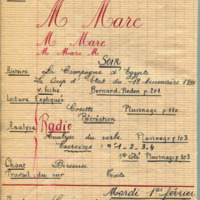 M Marc
M Marc
M Marc M
Soir
Histoire La Campagne d'Egypte
Le Coup d'Etat du 18 brumaire 1799
v. fiche Bernard. Redon p 201
Lecture Expliquée
Cosette Plurimage p 110
Récréation
Radio
Analyse Analyse du verbe Plurimage p 103
Exercices n° 1. 2. 3. 4
Plurimage p 103
Chant Berceuse
Travail du soir
Mardi 1er février